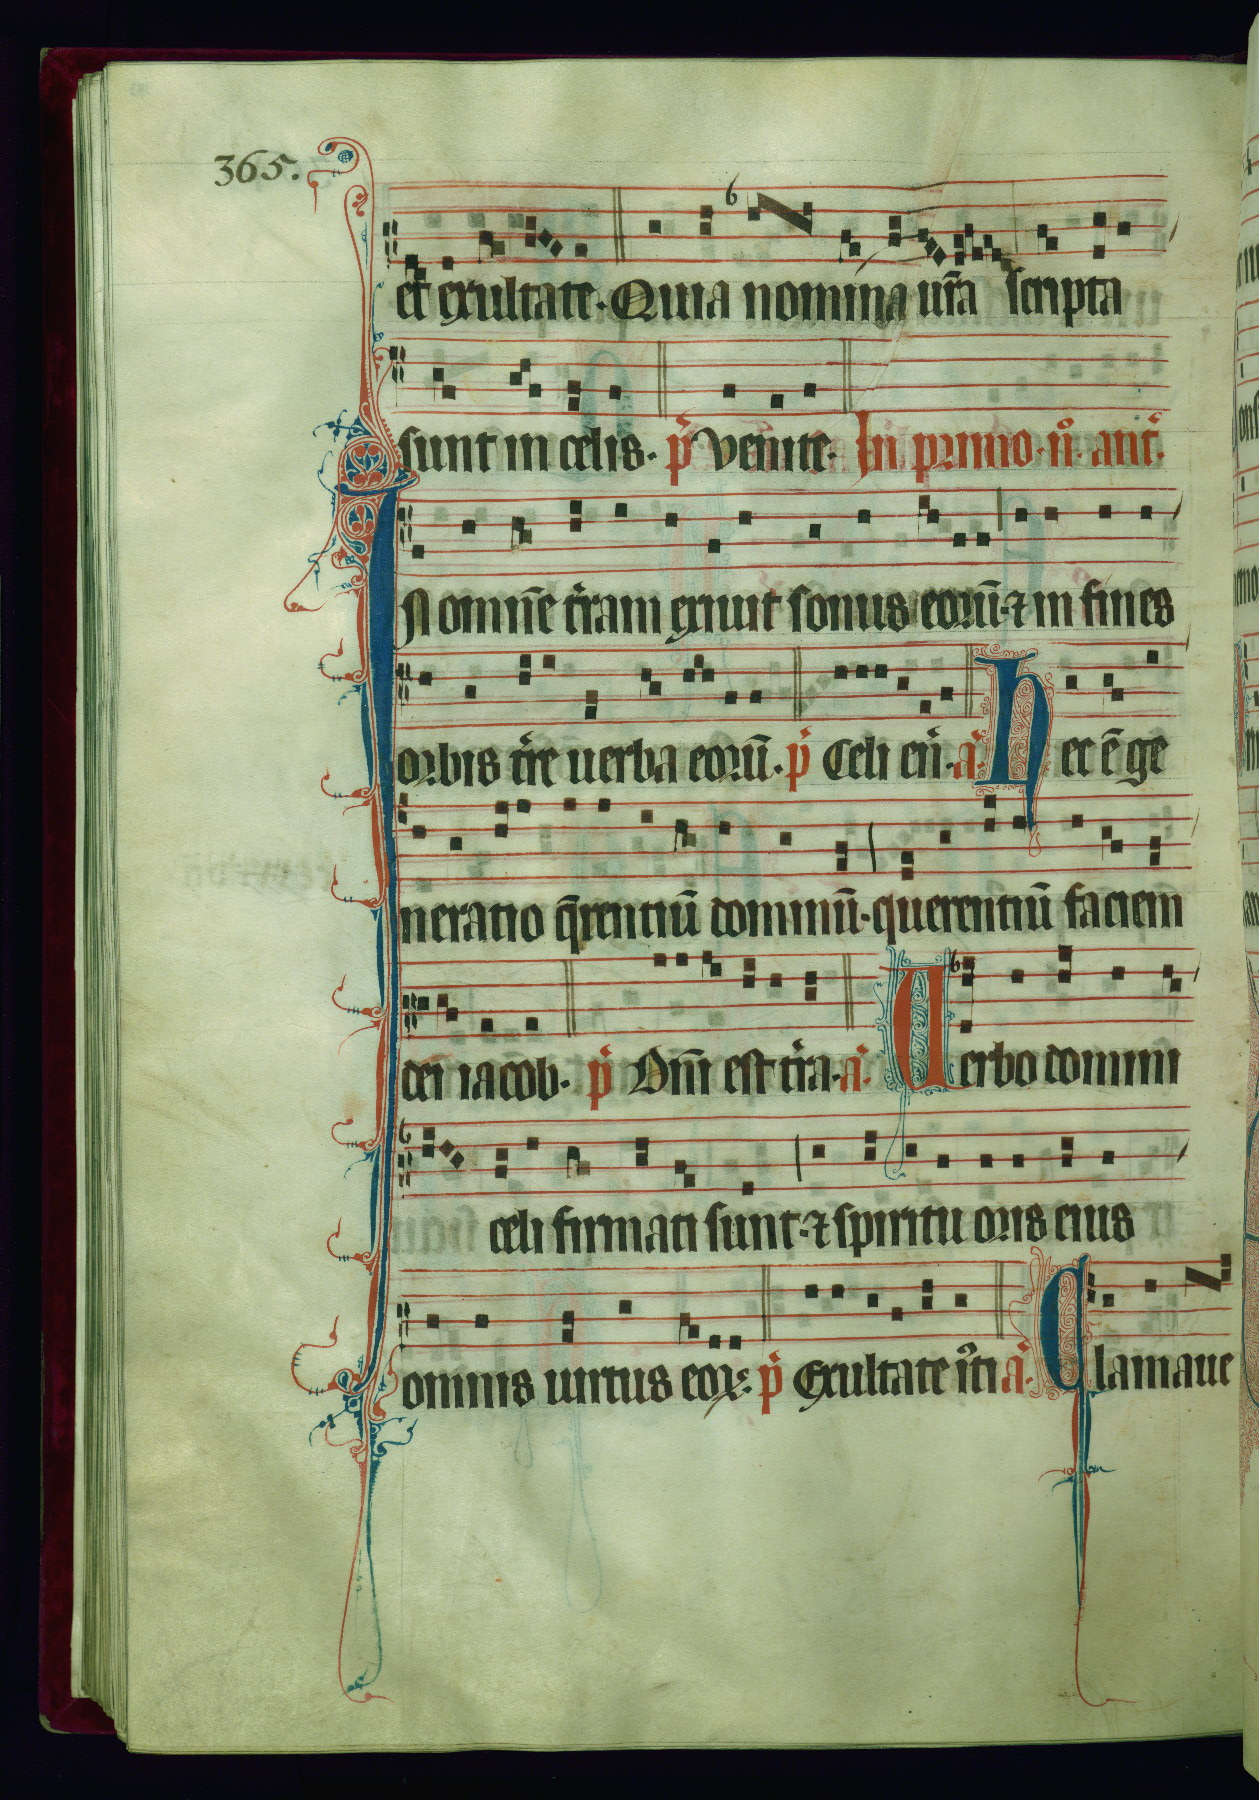 365.
et exultate. Quia nomina ur̄a scripta
sunt in celis. p̄ Venite. In primo. n̊. ant̄.
IN omnē t̄ram exiuit sonus eorū. ⁊ in fines
orbis t̄re uerba eorū. p̄ Celi en̄. a. Hec ē ge
neratio q̄rentiū dominū. querentiū faciem
dei iacob. p̄ Dn̄i est t̄ra. a. Uerbo domini
celi firmati sunt. ⁊ spiritu oris eius
omnis uirtus eoꝝ. p̄ Exultate i̊ti a. Clamaue